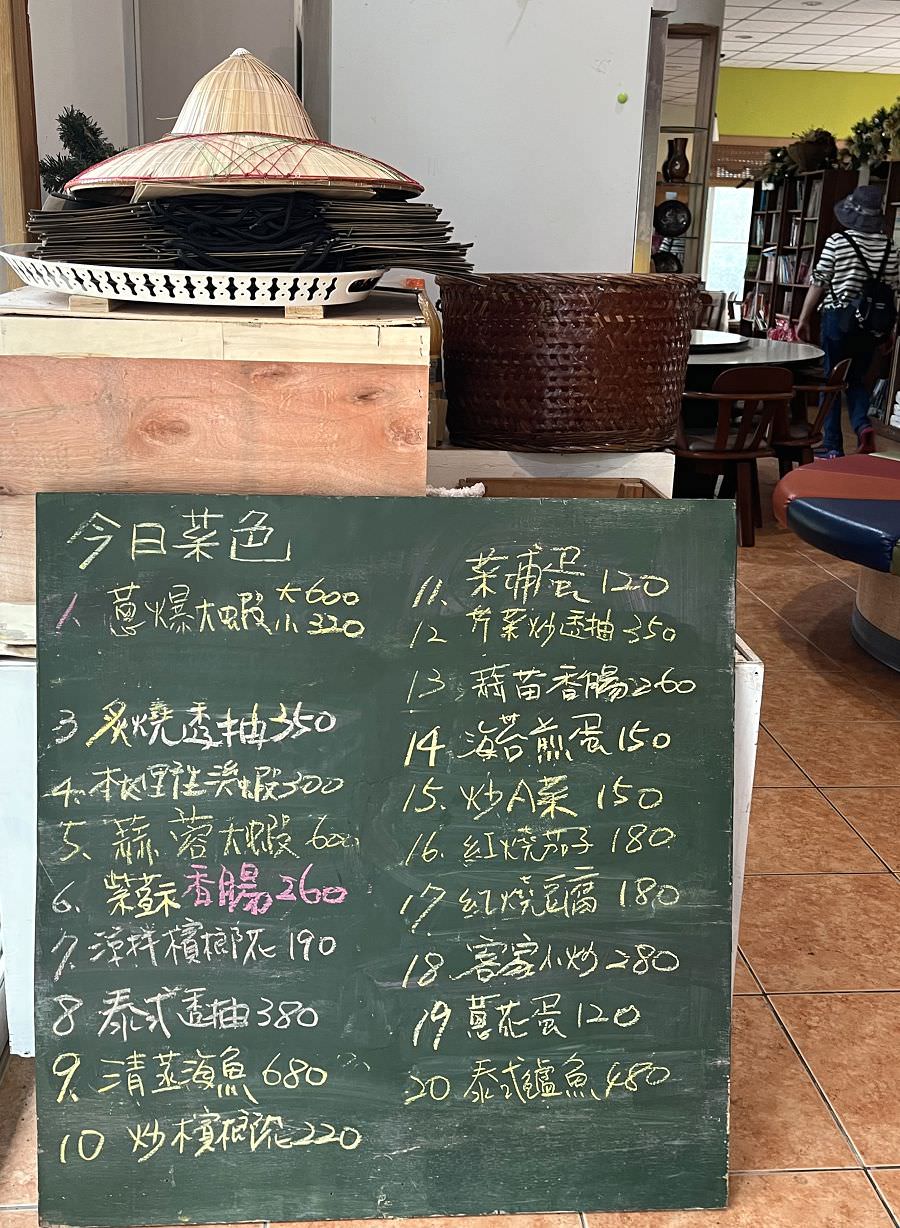 今日菜色
1. 蔥爆大蝦 大600
小320
3 炙燒透抽350
4. 椒鹽生流蝦300
5. 蒜蓉大蝦 600
6. 紫蘇香腸260
7. 涼拌檳榔花 190
8 泰式透抽380
9. 清蒸海魚680
10 炒檳榔花220
11. 菜甫蛋 120
12 芹菜炒透抽350
13 蒜苗香腸260
14 海苔煎蛋150
15. 炒A菜 150
16. 紅燒茄子 180
17 紅燒豆腐 180
18 客家小炒280
19 蔥花蛋120
20 泰式鱸魚480